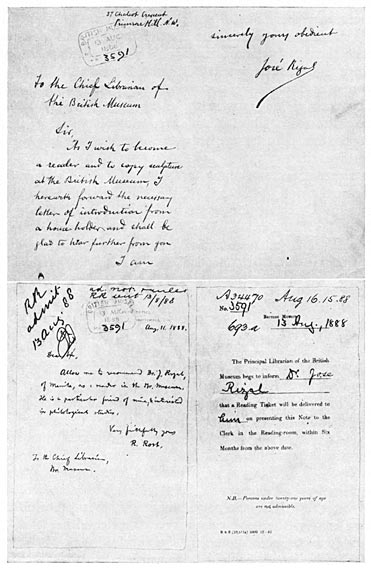 37 Chalcot Crescent
Primrose Hill, N.W.
BRITISH MUSEUM
13 AUG
1888
3591
To the Chief Librarian of
the British Museum
Sir,
As I wish to become
a reader and to copy sculpture
at the British Museum, I
herewith forward the necessary
letter of introduction from
a householder and shall be
glad to hear further from you
I am
sincerely yours obedient
José Rizal
RR
admit
13 Aug 88
ad. not. rules
RR sent 13/8/88
3591
Aug. 11. 1888.
Dear Sir,
Allow me to recommend Dr. J. Rizal,
of Manila, as a reader in the Br. Museum.
He is a particular friend of mine, interested
in philological studies.
Very faithfully yours
R. Rost.
To the Chief Librarian,
Br. Museum.
A34470 Aug 16.15.88
No. 3591
British Museum
693a 13 Aug, 1888
The Principal Librarian of the British
Museum begs to inform Dr. Jose
Rizal
that a Reading Ticket will be delivered to
him on presenting this Note to the
Clerk in the Reading-room, within Six
Months from the above date.
N.B.—Persons under twenty-one years of age
are not admissible.